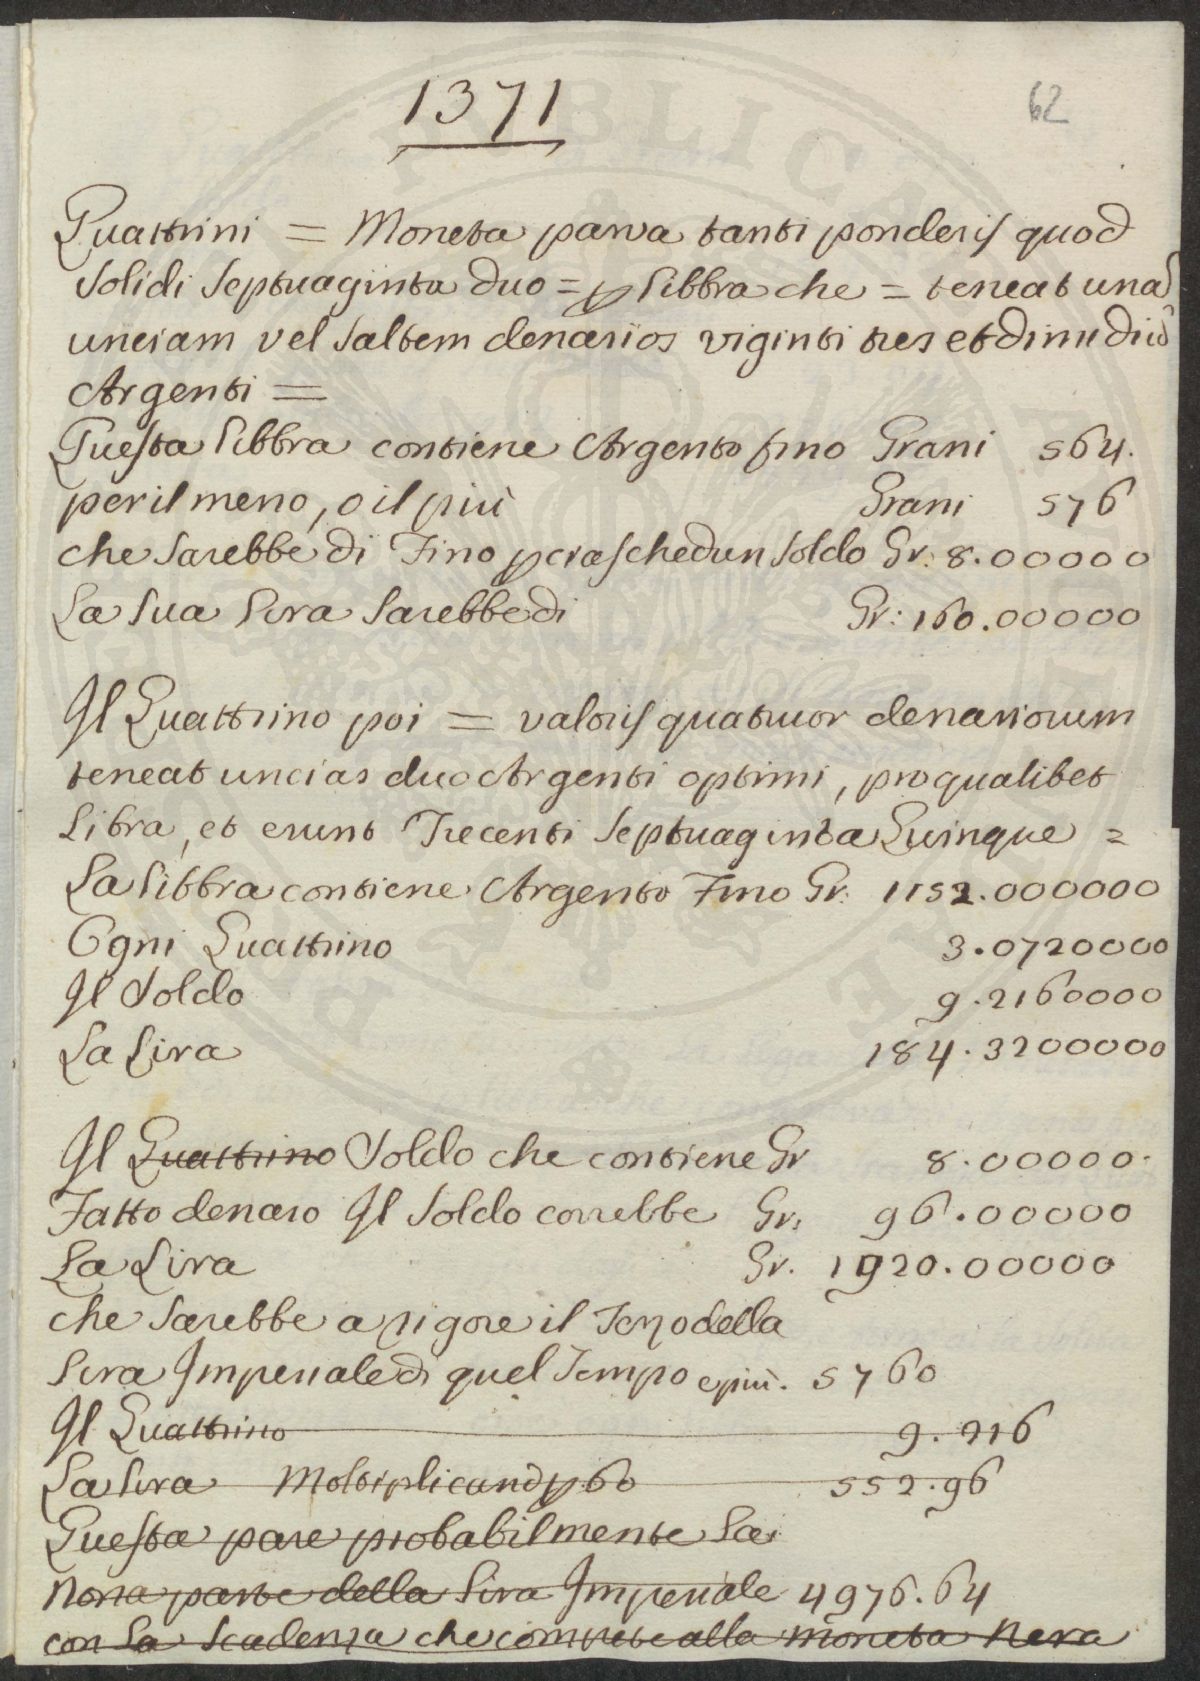 1371
62
Quattrini = Moneta parva tanti ponderis quod
solidi septuaginta duo = p libbra che = teneat una
unciam vel saltem denarios viginti tres et dimidiu
Argenti =
Questa libbra contiene Argento fino Grani 564.
per il meno, o il più Grani 576
che sarebbe di Fino p ciaschedun soldo Gr: 8.00000
La sua Lira sarebbe di Gr: 160.00000
Il Quattrino poi = valoris quatuor denariorum
teneat uncias duo Argenti optimi, pro qualibet
Libra, et erunt Trecenti septuaginta Quinque =
La libbra contiene Argento Fino Gr: 1152.000000
Ogni Quattrino 3.0720000
Il Soldo 9.2160000
La Lira 184.3200000
Il Quattrino Soldo che contiene Gr 8.00000.
Fatto denaro Il soldo correbbe Gr. 96.00000
La Lira Gr. 1920.00000
che sarebbe a rigore il Terzo della
Lira Imperiale di quel Tempo e più. 5760
Il Quattrino 9.216
La Lira Moltiplicand p 60 552.96
Questa pare probabilmente La
Nona parte della Lira Imperiale 4976.64
con La scadenza che compete alla moneta Nera